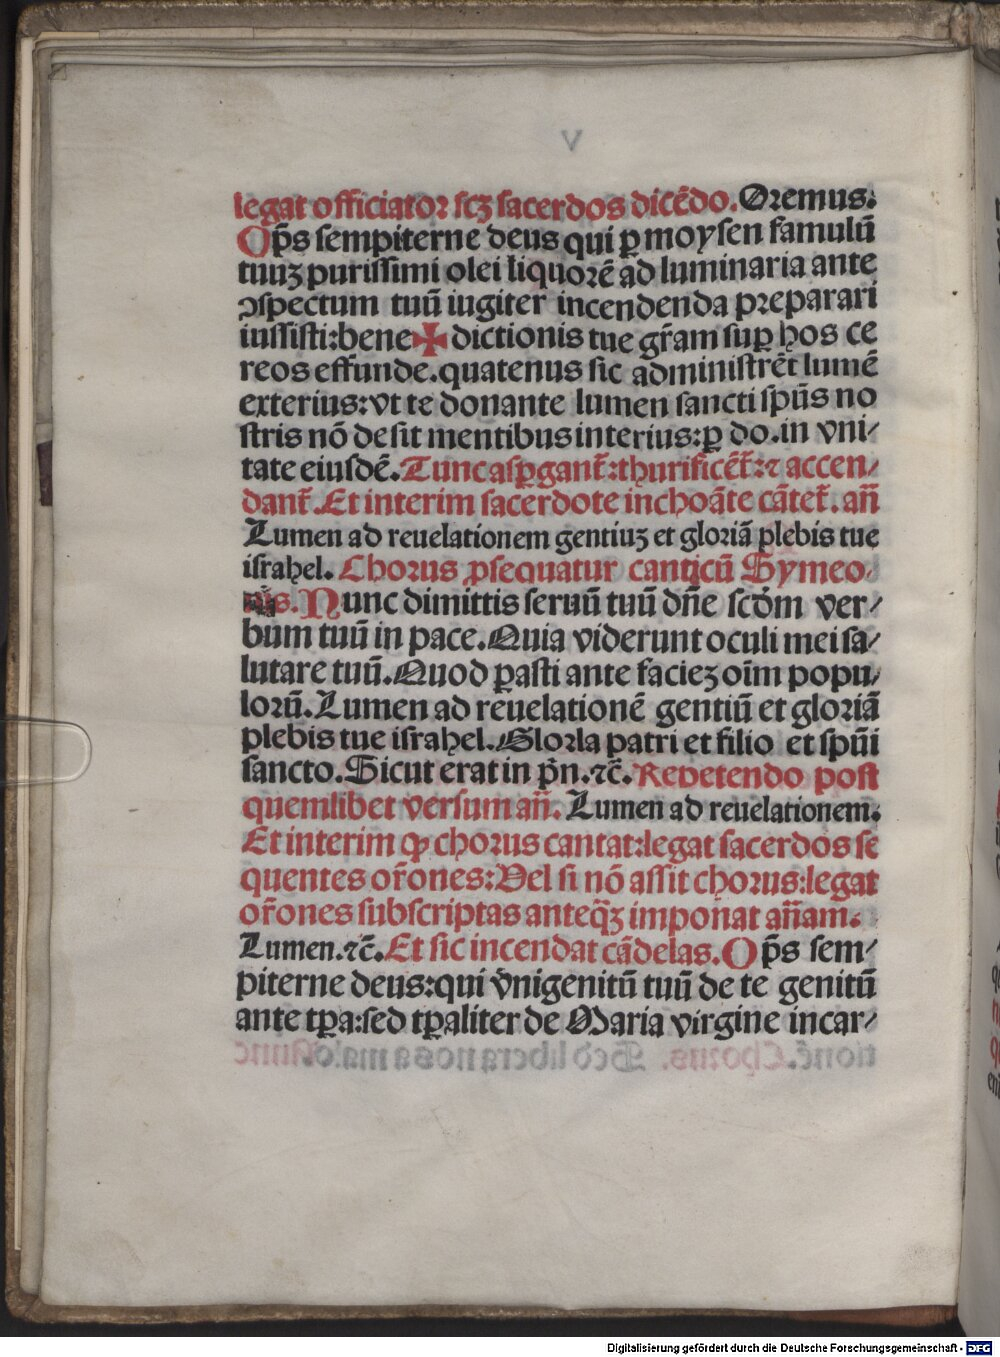 legat officiator scꝫ sacerdos dicēdo. Oremus.
Op̄s sempiterne deus qui ꝑ moysen famulū
tuuꝫ purissimi olei liquorē ad luminaria ante
ꝯspectum tuū iugiter incendenda preparari
iussisti:bene✠dictionis tue gr̄am suꝑ hos ce
reos effunde.quatenus sic administrēt lumē
exterius:vt te donante lumen sancti spūs no
stris nō desit mentibus interius:ꝑ do.in vni/
tate eiusdē. Tunc asꝑgant᷑:thurificēt᷑:⁊ accen/
dant᷑. Et interim sacerdote inchoāte cātet᷑. añ
Lumen ad reuelationem gentiuꝫ et gloriā plebis tue
israhel. Chorus ꝓsequatur canticū Symeo/
nis. Nunc dimittis seruū tuū dn̄e scd̄m ver/
bum tuū in pace. Quia viderunt oculi mei sa/
lutare tuū. Quod ꝑasti ante facieꝫ oīm popu/
lorū. Lumen ad reuelationē gentiū et gloriā
plebis tue israhel. Gloria patri et filio et spūi
sancto. Sicut erat in pͥn.⁊c̄. Repetendo post
quemlibet versum añ. Lumen ad reuelationem.
Et interim ꝙ chorus cantat:legat sacerdos se
quentes or̄ones: Vel si nō assit chorus:legat
or̄ones subscriptas anteq̄ꝫ imponat añam.
Lumen.⁊c̄. Et sic incendat cādelas. Op̄s sem/
piterne deus:qui vnigenitū tuū de te genitū
ante tꝑa:sed tꝑaliter de Maria virgine incar/
Digitalisierung gefördert durch die Deutsche Forschungsgemeinschaft - DFG